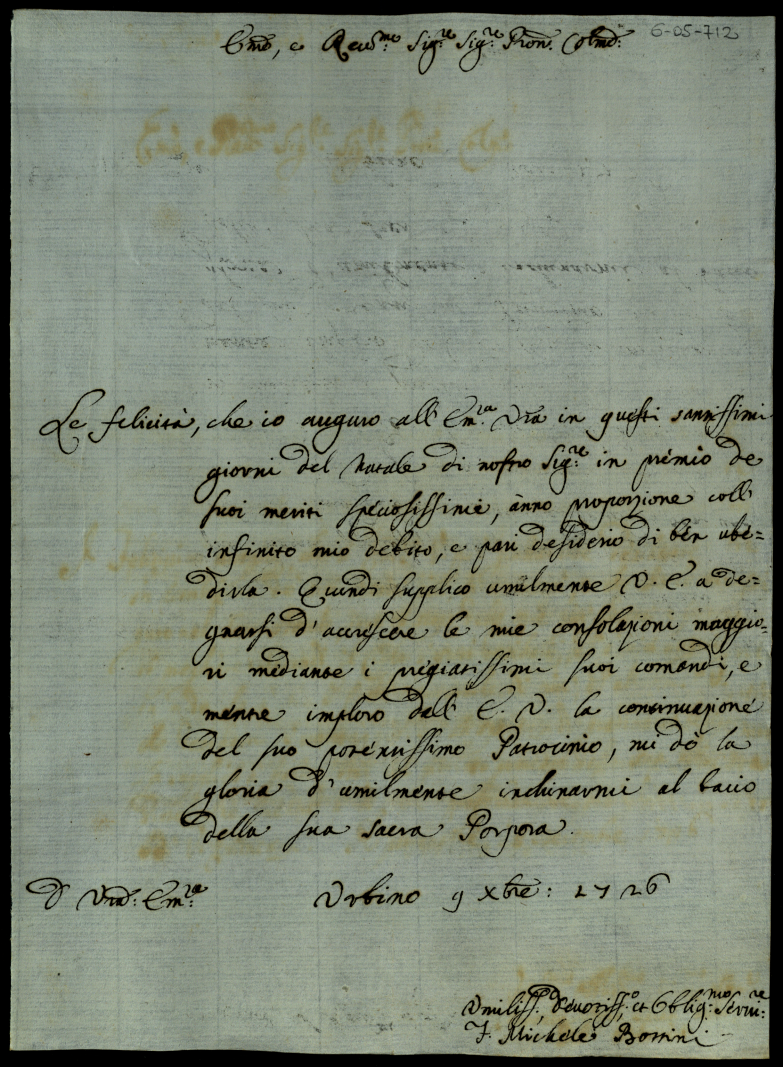 6-05-712
Em̃o, e Reu:mo Sig:re Sig:re Pron: Colmo:
Le felicità, che io auguro all' Em:za Vra in questi santissimi
giorni del Natale di nostro Sig:re in premio de
suoi meriti speciosissimi, ànno proporzione coll'
infinito mio debito, e pari desiderio di ben ube=
dirla. Quindi supplico umilmente V. E. a de=
gnarsi d'accrescere le mie consolazioni maggio=
ri mediante i pregiatissimi suoi comandi, e
mentre imploro dall' E. V. la continuazione
del suo potentissimo Patrocinio, mi dò la
gloria d'umilmente inchinarmi al bacio
della sua sacra Porpora.
D Vra: Em:za
Urbino 9 Xbre: 1726
Umiliss:o, Deuotiss:o, et Oblig:mo Seruit:re
F. Michele Bottini